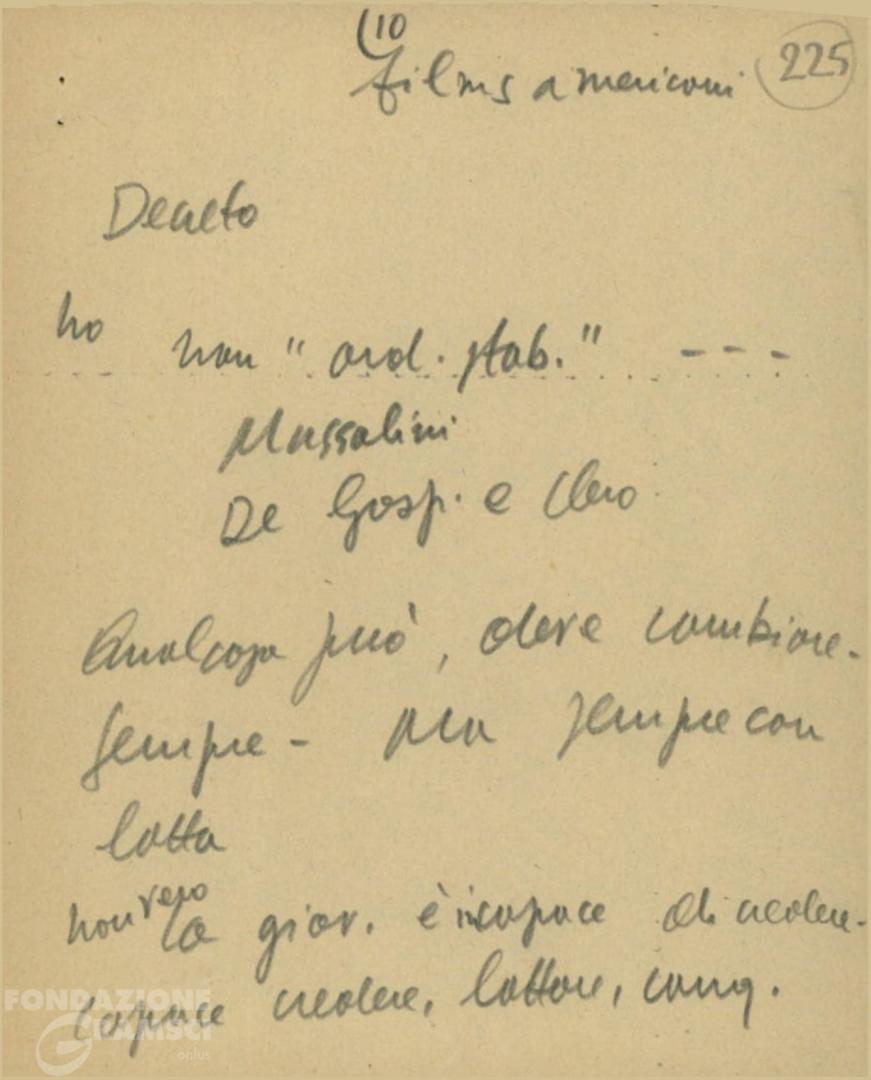 (10
films americani 225
Decreto
no non "ord. stab." ---
Mussolini
De Gasp. e Clero
Qualcosa può, deve cambiare.
Sempre - Ma sempre con
lotta
non vero
la giov. è incapace di credere.
Capace credere, lottare, conq.
FONDAZIONE
GRAMSCI
onlus